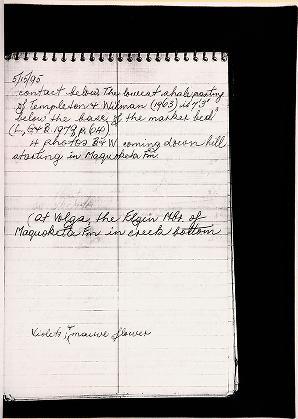 5/15/95
contact below the lowest shale parting
of Templeton & Willman (1963) is 7'3"
below the base of the marker bed
(L, G & B. 1979, p. 64)
4 photos B&W coming down hill
starting in Maquoketa Fm
(at Volga, the Elgin Mbr. of
Maquoketa Fm in creek bottom
Violets, mauve flower